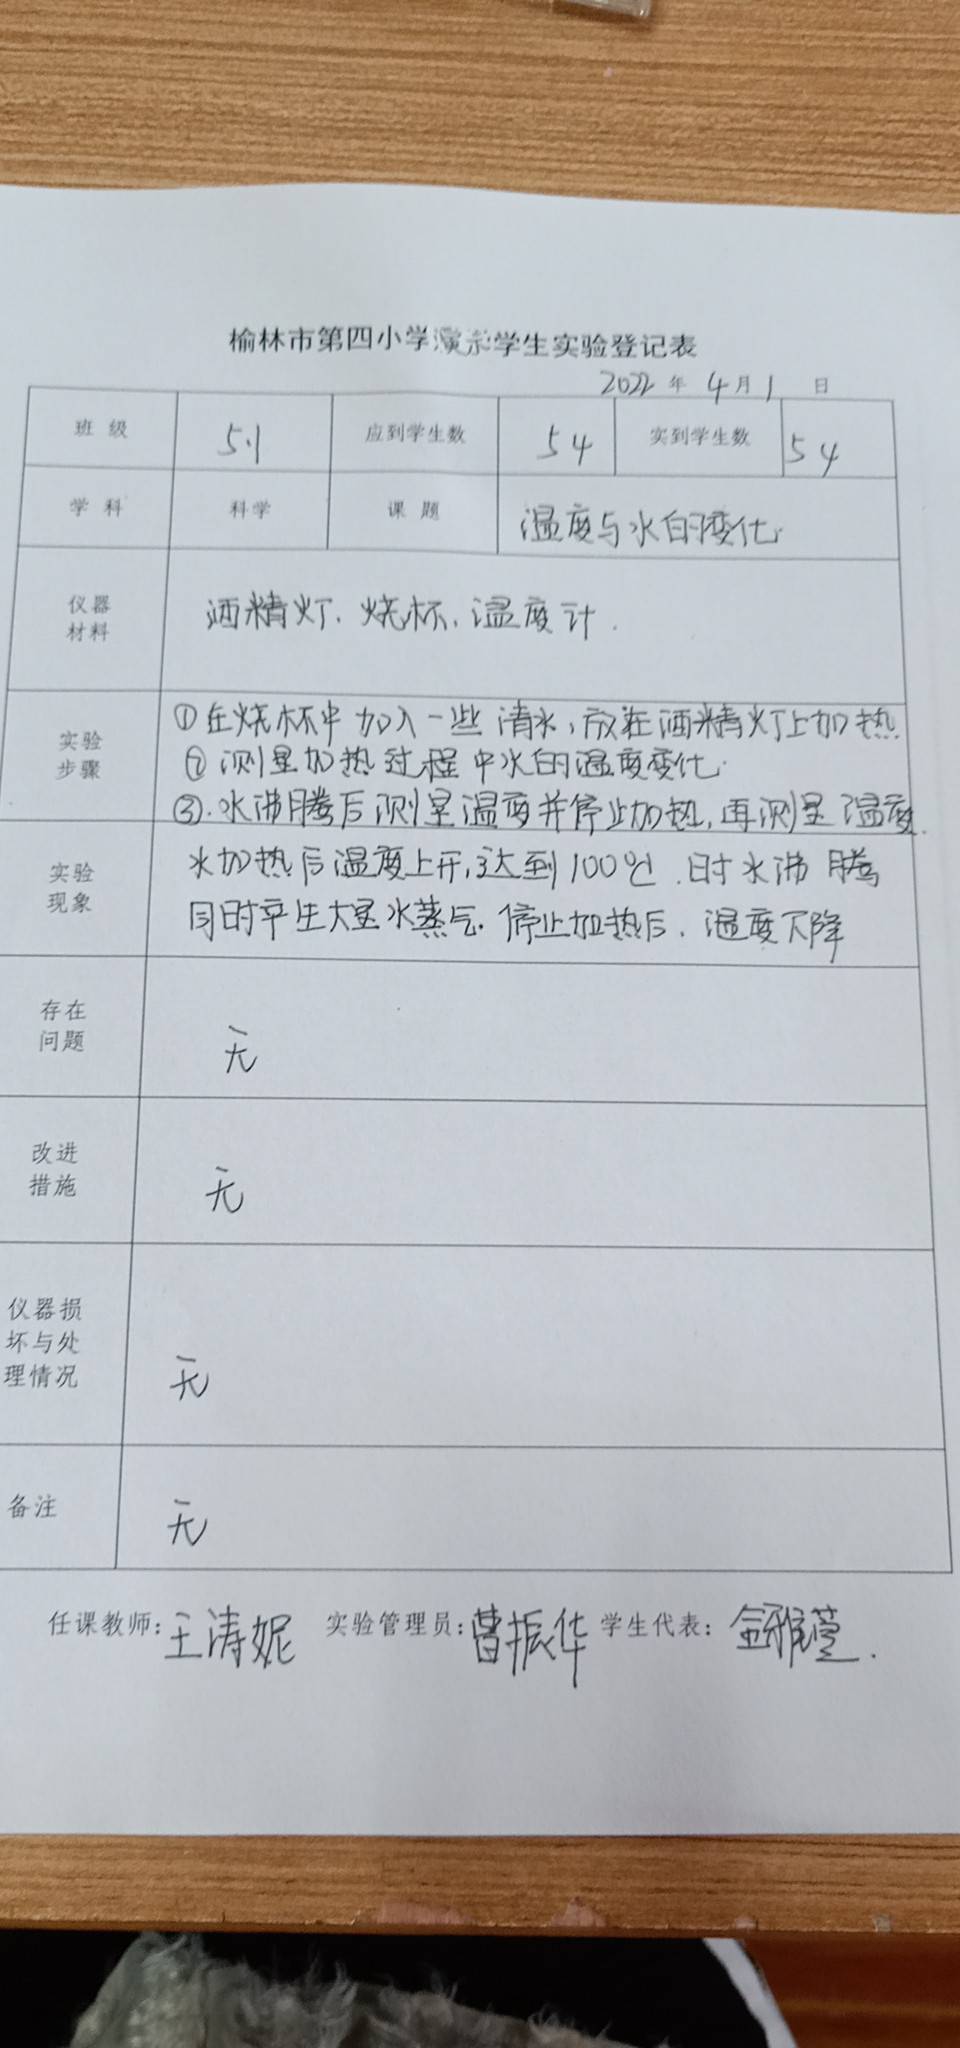 榆林市第四小学演示学生实验登记表
2022 年 4 月 1 日
班 级 5.1 应到学生数 54 实到学生数 54
学 科 科学 课 题 温度与水的变化.
仪器
材料
酒精灯、烧杯、温度计.
实验
步骤
①在烧杯中加入一些清水,放在酒精灯上加热
②测量加热过程中水的温度变化.
③.水沸腾后测量温度并停止加热,再测量温度.
实验
现象
水加热后温度上升,达到100℃.时水沸腾
同时产生大量水蒸气.停止加热后.温度下降
存在
问题
无
改进
措施
无
仪器损
坏与处
理情况
无
备注
无
任课教师:王涛妮 实验管理员:曹振华 学生代表: